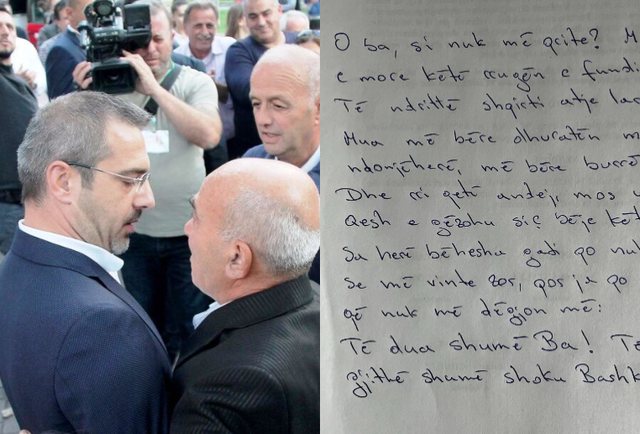 O ba, si nuk më qrite? M
e more këtë rrugën e fundi
Të ndrittë shpirti atje lar
Mua më bëre dhuratën m
ndonjëherë, më bëre burrë
Dhe rri qetë andej, mos
Qesh e gëzohu siç bëje këtë
Sa herë bëhesha gadi po nuk
Se më vinte zor, por ja po
që nuk më dëgjon më:
Të dua shumë Ba! Të
gjithë shumë shoku Bashk